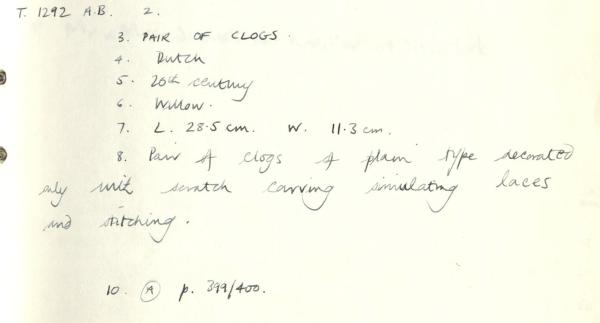 T. 1292 A.B. 2.
3. PAIR OF CLOGS.
4. Dutch
5. 20th century
6. Willow.
7. L. 28.5 cm. W. 11.3 cm.
8. Pair of clogs of plain type decorated
only with scratch carving simulating laces
and stitching.
10. (A) p. 399/400.